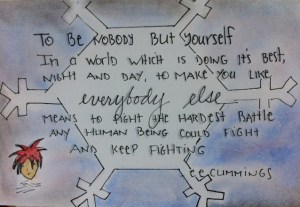 To Be NOBODY BUT Yourself
In a WORLD WHICH IS DOING IT'S BEST,
NIGHT AND DAY, TO MAKE YOU LIKE
everybody else
MEANS TO FIGHT THE HARDEST BATTLE
ANY HUMAN BEING COULD FIGHT
AND KEEP FIGHTING
E.E. CUMMINGS